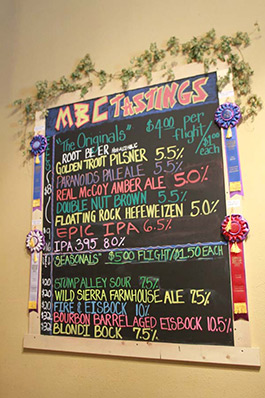 MBC TASTINGS
"The Originals" $4.00 per flight/
$1 each
ROOT BEER
GOLDEN TROUT PILSNER 5.5%
PARANOIDS PALE ALE 5.5%
REAL McCOY AMBER ALE 5.0%
DOUBLE NUT BROWN 5.5%
FLOATING ROCK HEFEWEIZEN 5.0%
EPIC IPA 6.5%
IPA 395 8.0%
SEASONALS" $5.00 FLIGHT/$1.50 EACH
STUMP ALLEY SOUR 7.5%
WILD SIERRA FARMHOUSE ALE 7.5%
FIRE & EISBOCK 10%
BOURBON BARREL AGED EISBOCK 10.5%
BLONDI BOCK 7.5%